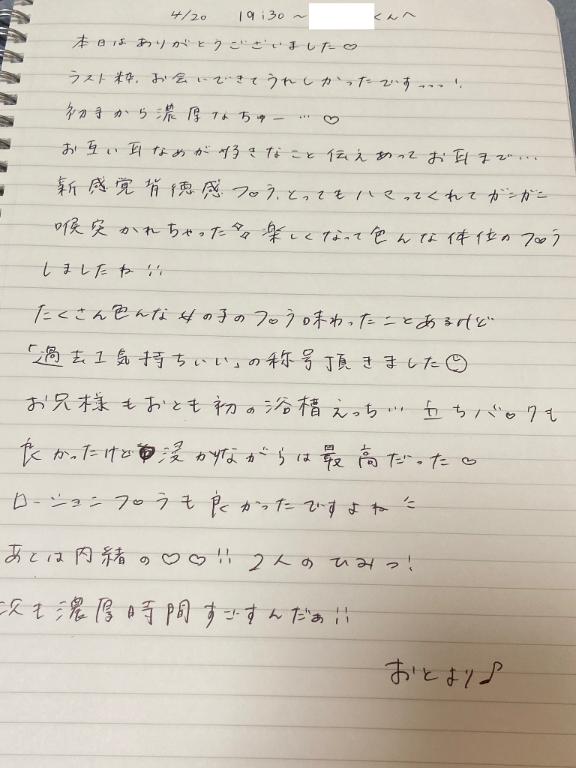 4/20 19:30〜 くんへ
本日はありがとうございました♡
ラスト枠、お会いできてうれしかったです....!
初手から濃厚なちゅー…♡
お互い耳なめが好きなこと伝えあってお耳まで…
新感覚背徳感フェラ、とってもハマってくれてガンガン
喉突かれちゃった 楽しくなって色んな体位のフェラ
しましたね!!
たくさん色んな女の子のフェラ味わったことあるけど
「過去1気持ちいい」の称号頂きました☺
お兄様もおとも初の浴槽えっち… 立ちバックも
良かったけど浸かりながらは最高だった♡
ローションフェラも良かったですよね
あとは内緒の♡♡!! 2人のひみつ!
次も濃厚時間すごすんだぁ!!
おとより♪